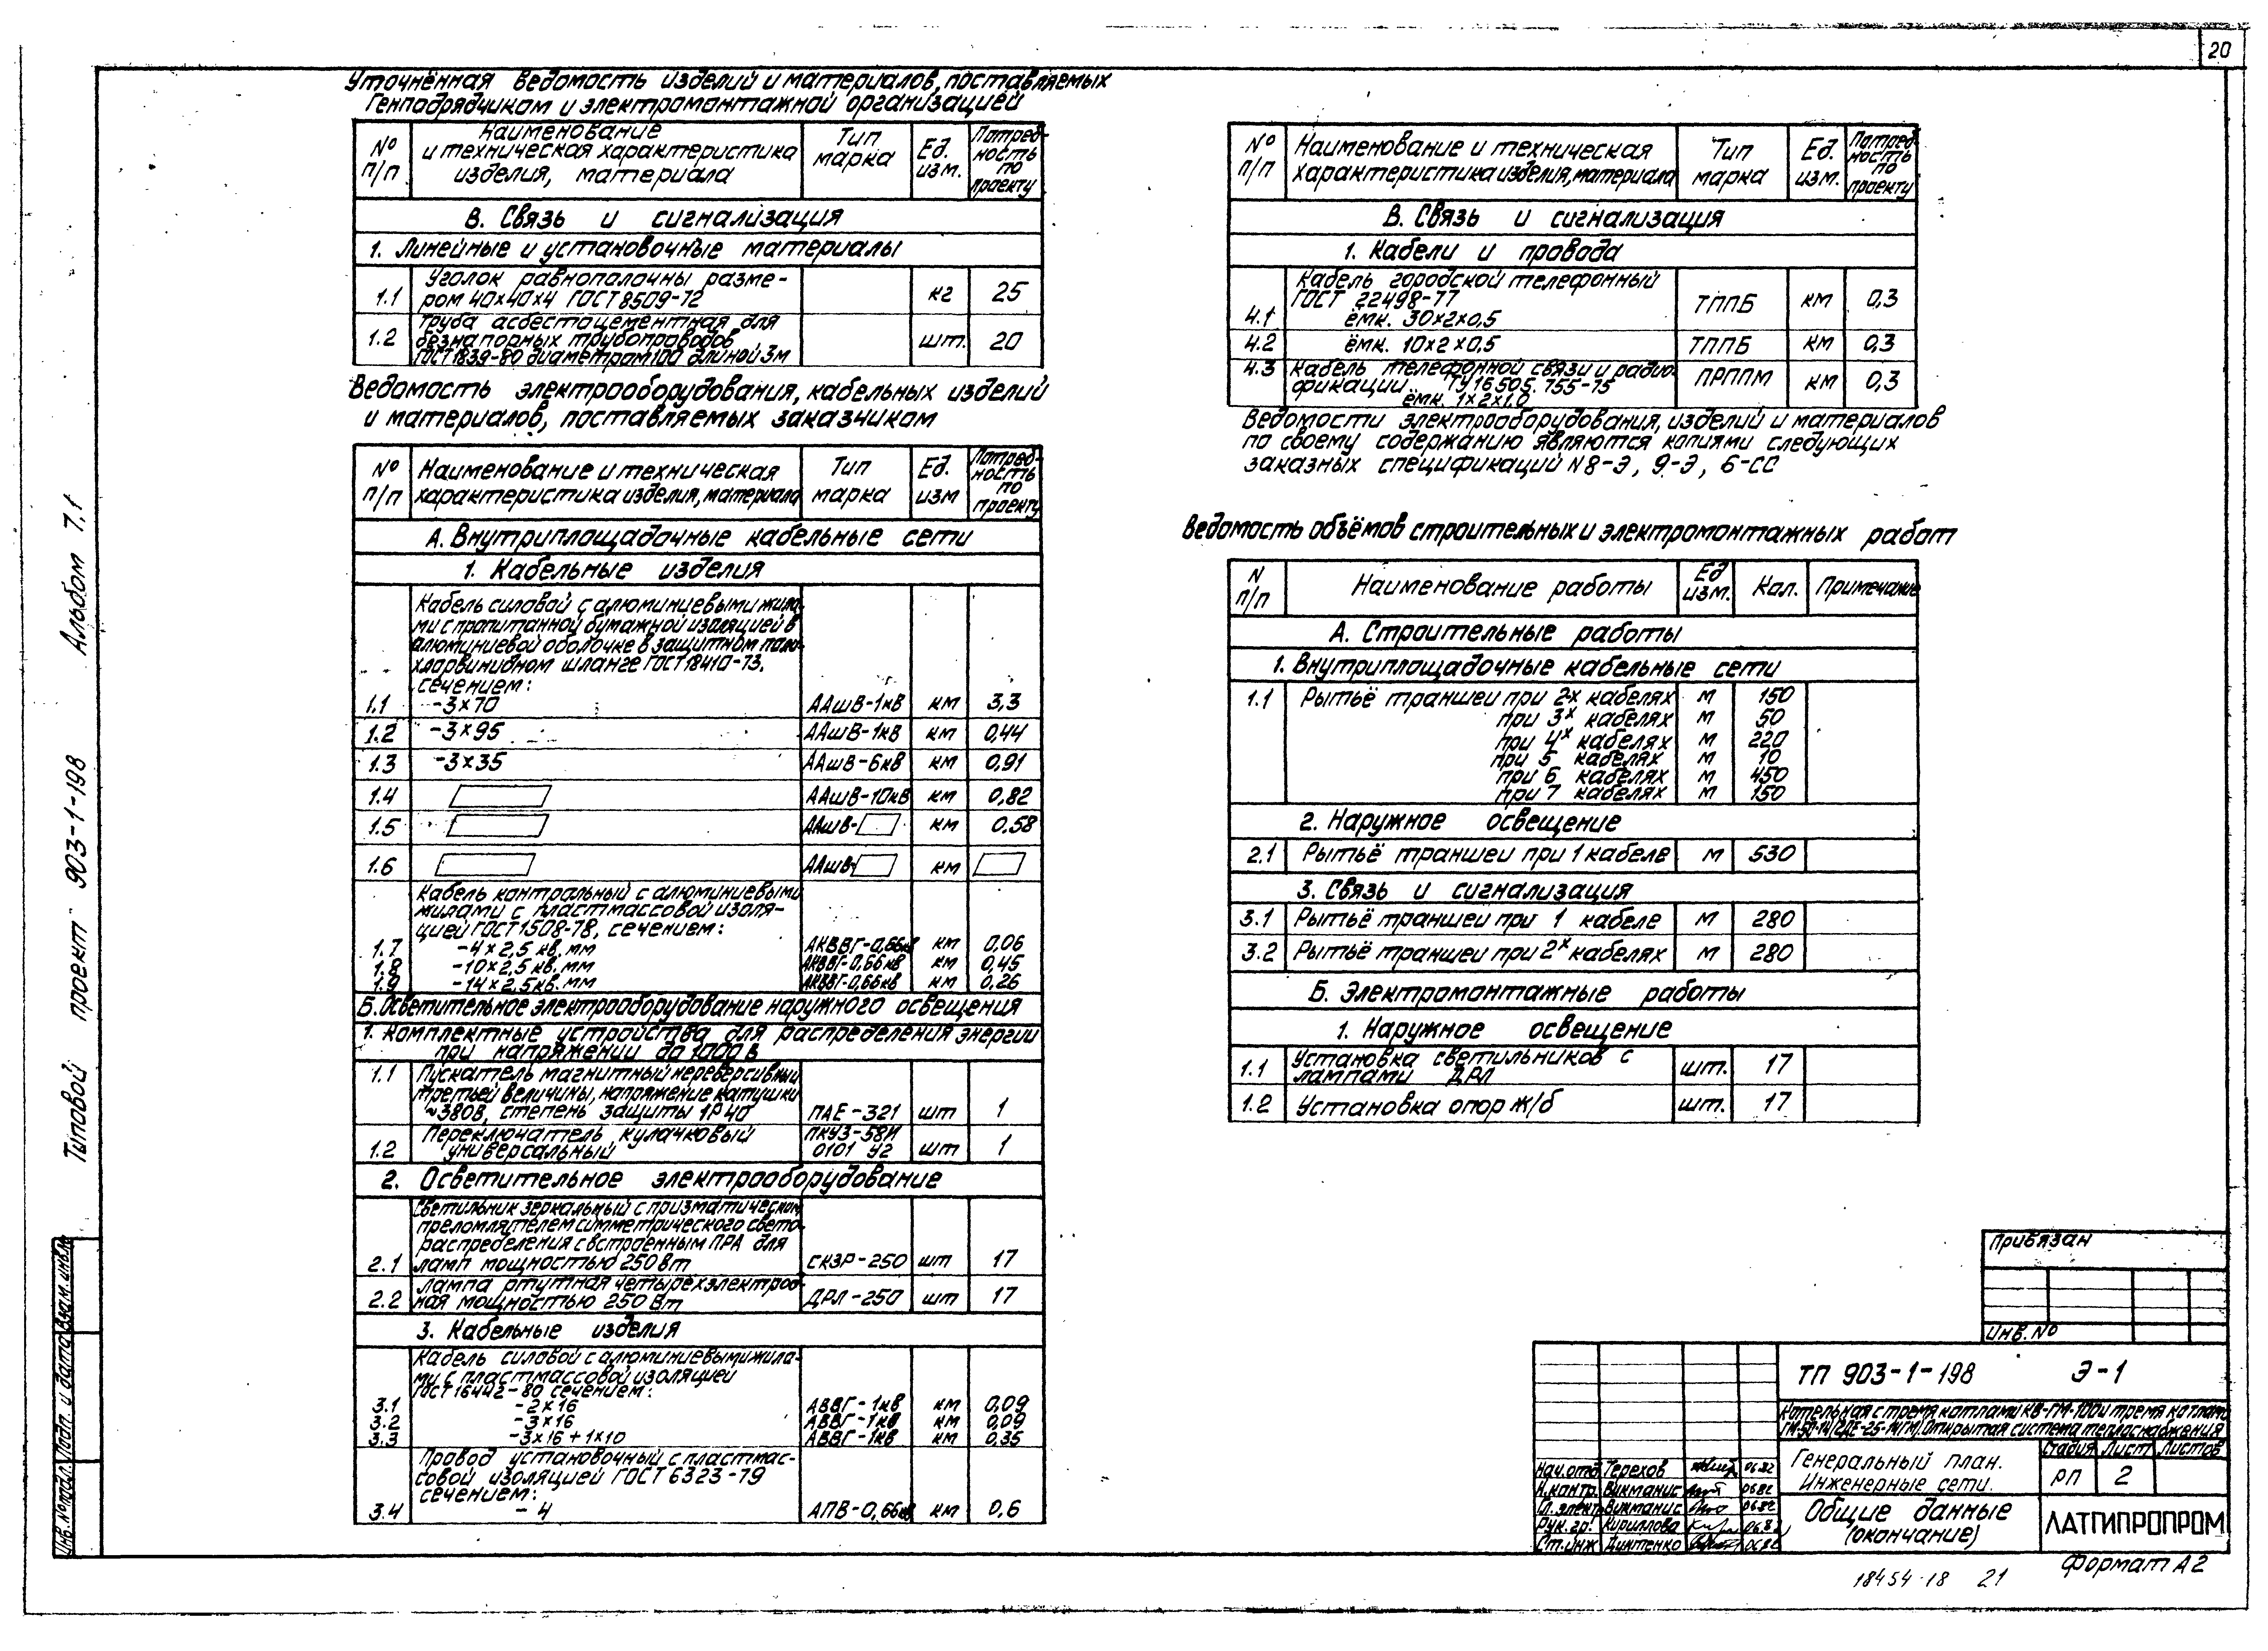 20
Уточнённая ведомость изделий и материалов, поставляемых
Генподрядчиком и электромонтажной организацией
№ п/п | Наименование и техническая характеристика изделия, материала | Тип марка | Ед. изм. | Потребность по проекту
В. Связь и сигнализация
1. Линейные и установочные материалы
1.1 Уголок равнополочны разме-
ром 40х40х4 ГОСТ 8509-72 кг 25
1.2 Труба асбестоцементная для
безнапорных трубопроводов
ГОСТ 1839-80 диаметром 100 длиной 3м шт. 20
Ведомость электрооборудования, кабельных изделий
и материалов, поставляемых заказчиком
№ п/п | Наименование и техническая характеристика изделия, материала | Тип марка | Ед. изм | Потребность по проекту
А. Внутриплощадочные кабельные сети
1. Кабельные изделия
Кабель силовой с алюминиевыми жила-
ми с пропитанной бумажной изоляцией в
алюминиевой оболочке в защитном поли-
хлорвиниловом шланге ГОСТ 18410-73,
сечением:
1.1 -3×70 ААшВ-1кВ км 3,3
1.2 -3×95 ААшВ-1кВ км 0,44
1.3 -3×35 ААшВ-6кВ км 0,91
1.4 ААшВ-10кВ км 0,82
1.5 ААшВ- км 0,58
1.6 ААшВ- км
Кабель контрольный с алюминиевыми
жилами с пластмассовой изоля-
цией ГОСТ 1508-78, сечением:
1.7 -4×2,5 кв.мм АКВВГ-0,66кВ км 0,06
1.8 -10×2,5 кв.мм АКВВГ-0,66кВ км 0,45
1.9 -14×2,5 кв.мм АКВВГ-0,66кВ км 0,26
Б. Осветительное электрооборудование наружного освещения
1. Комплектные устройства для распределения энергии
при напряжении до 1000 В
1.1 Пускатель магнитный нереверсивный
третьей величины, напряжение катушки
~380В, степень защиты 1Р40 ПАЕ-321 шт 1
1.2 Переключатель кулачковый
универсальный ПКУЗ-58И 0101 У2 шт 1
2. Осветительное электрооборудование
Светильник зеркальный с призматическим
преломлятелем симметрического свето-
распределения с встроенным ПРА для
2.1 ламп мощностью 250 Вт СКЗР-250 шт 17
Лампа ртутная четырехэлектрод-
2.2 ная мощностью 250 Вт ДРЛ-250 шт 17
3. Кабельные изделия
Кабель силовой с алюминиевыми жила-
ми с пластмассовой изоляцией
ГОСТ 16442-80 сечением:
3.1 -2×16 АВВГ-1кВ км 0,09
3.2 -3×16 АВВГ-1кВ км 0,09
3.3 -3×16+1×10 АВВГ-1кВ км 0,35
Провод установочный с пластмас-
совой изоляцией ГОСТ 6323-79
сечением:
3.4 -4 АПВ-0,66кВ км 0,6
№ п/п | Наименование и техническая характеристика изделия, материала | Тип марка | Ед. изм. | Потребность по проекту
В. Связь и сигнализация
1. Кабели и провода
Кабель городской телефонный
ГОСТ 22498-77
4.1 ёмк. 30×2×0,5 ТППБ км 0,3
4.2 ёмк. 10×2×0,5 ТППБ км 0,3
4.3 Кабель телефонной связи и радио-
фикации ТУ16505.755-75
ёмк. 1×2×1,0 ПРППМ км 0,3
Ведомости электрооборудования, изделий и материалов
по своему содержанию являются копиями следующих
заказных спецификаций N 8-Э, 9-Э, 6-СС
Ведомость объёмов строительных и электромонтажных работ
N п/п | Наименование работы | Ед изм. | Кол. | Примечание
А. Строительные работы
1. Внутриплощадочные кабельные сети
1.1 Рытьё траншеи при 2х кабелях м 150
при 3х кабелях м 50
при 4х кабелях м 220
при 5 кабелях м 10
при 6 кабелях м 450
при 7 кабелях м 150
2. Наружное освещение
2.1 Рытьё траншеи при 1 кабеле м 530
3. Связь и сигнализация
3.1 Рытьё траншеи при 1 кабеле м 280
3.2 Рытьё траншеи при 2х кабелях м 280
Б. Электромонтажные работы
1. Наружное освещение
1.1 Установка светильников с
лампами ДРЛ шт. 17
1.2 Установка опор ж/б шт. 17
Типовой проект 903-1-198 Альбом 7.1
Инв.№подл. Подп. и дата Взам.инв.№
Привязан
Инв.№
ТП 903-1-198 Э-1
Котельная с тремя котлами КВ-ГМ-100 и тремя котлами
ГМ-50-14/(ДЕ-25-14ГМ). Открытая система теплоснабжения
Генеральный план.
Инженерные сети.
Стадия Лист Листов
РП 2
Общие данные
(окончание)
ЛАТГИПРОПРОМ
Нач.отд. Терехов 06.82
Н.контр. Викманис 06.82
Гл.электр. Викманис 06.82
Рук.гр. Кириллова 06.82
Ст.инж 06.82
Формат А2
18454-18 21